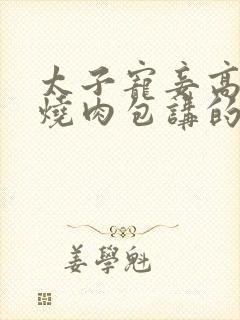 太子寵妾高
燒肉包講的
姜學魁